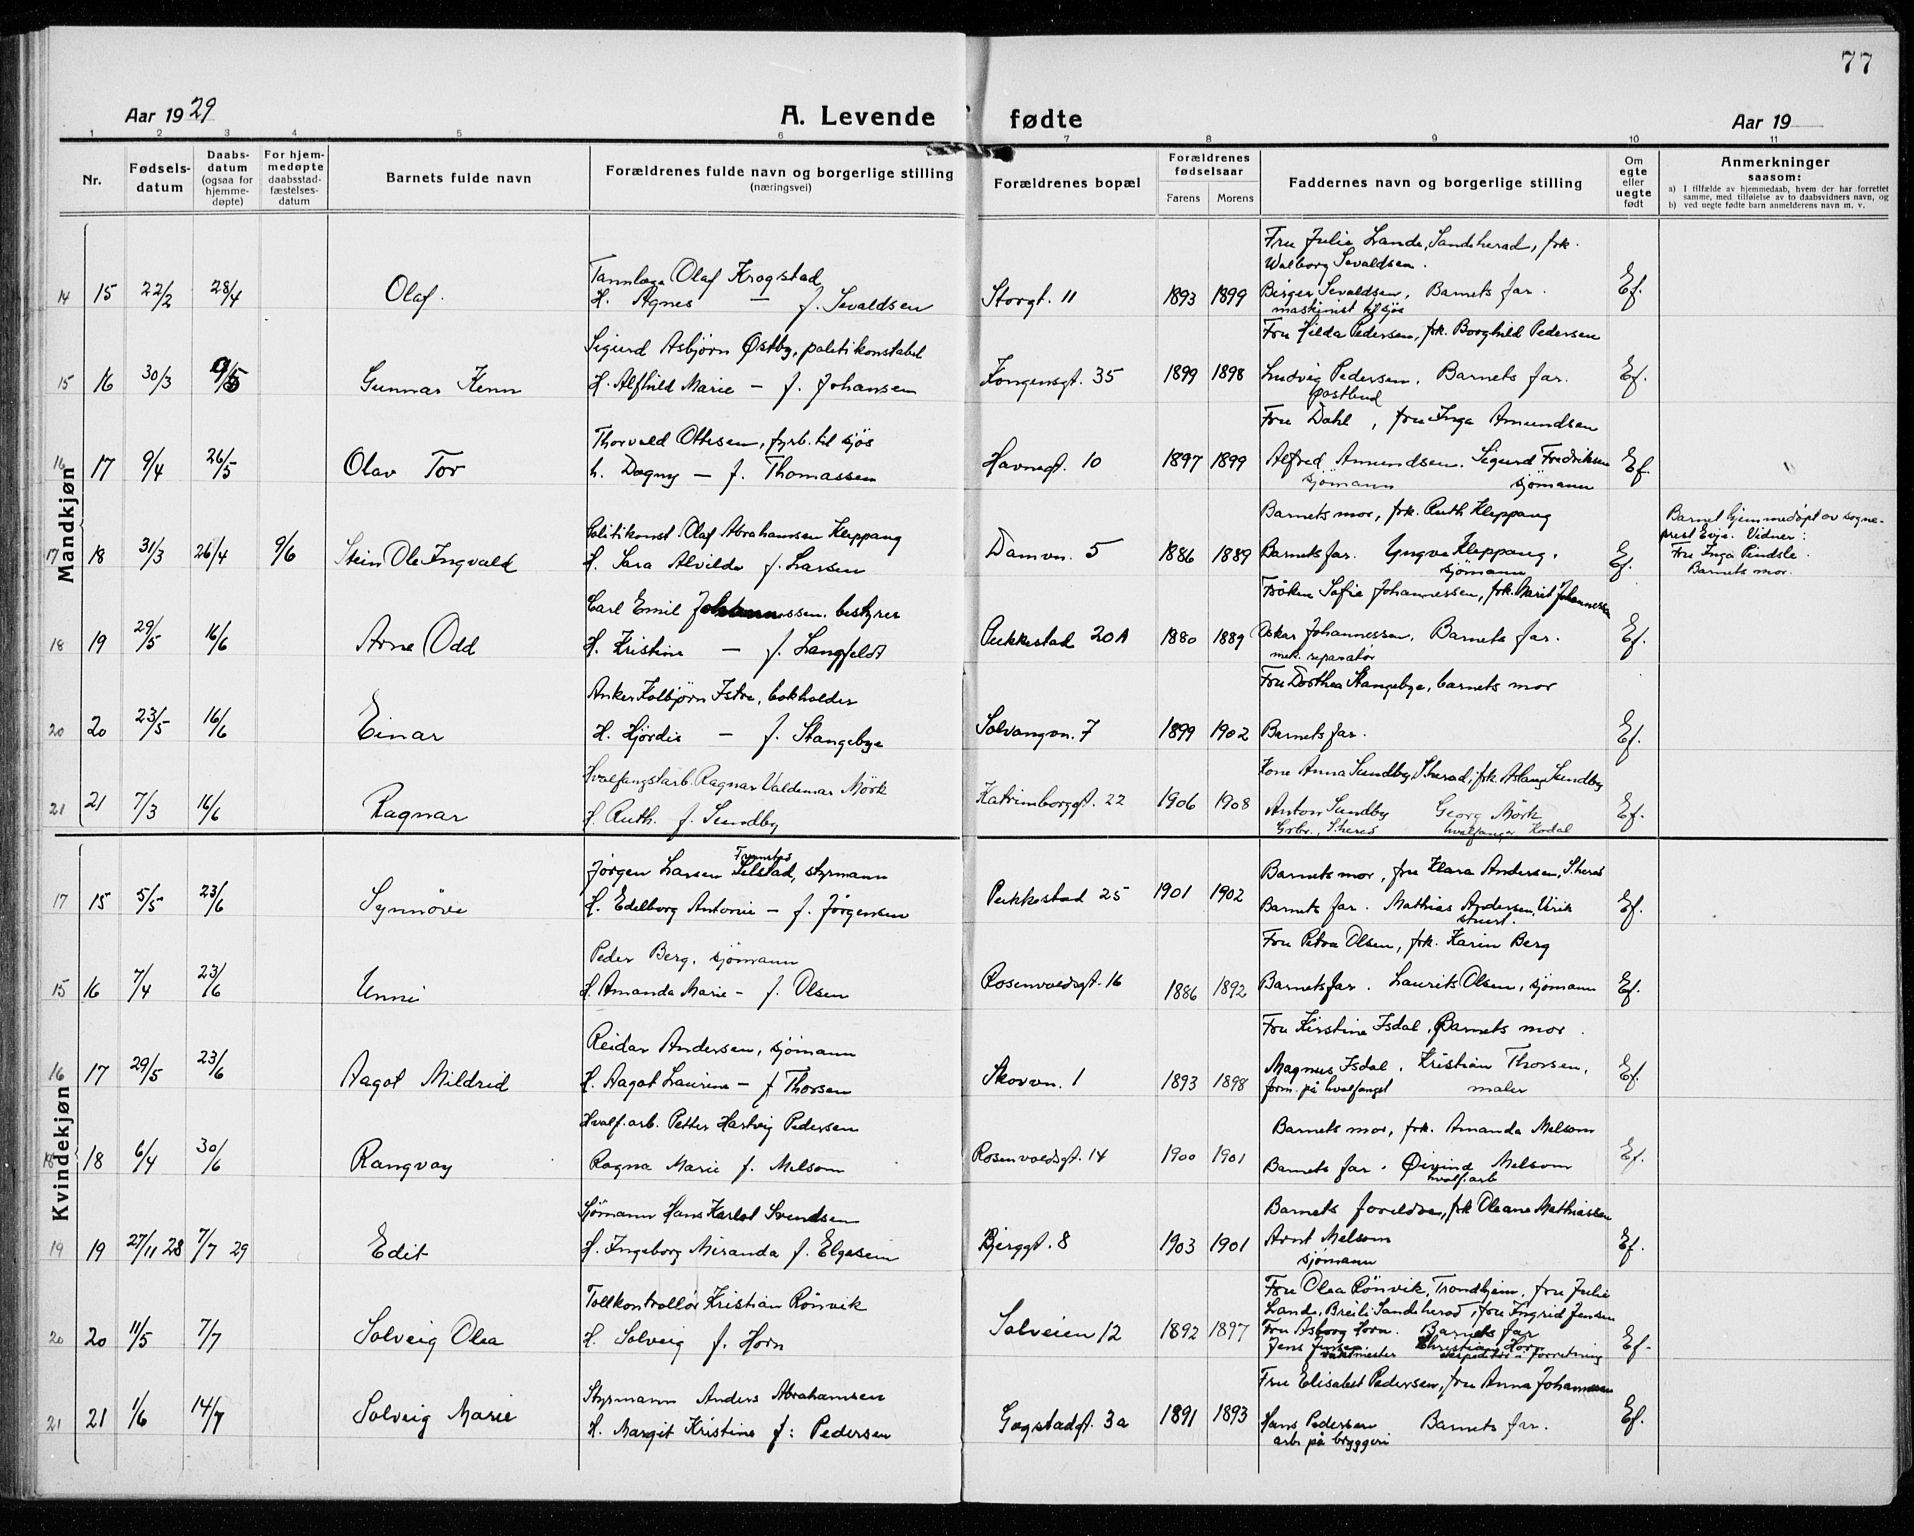 77
Aar 1929 A. Levende fødte Aar 19
1 2 3 4 5 6 7 8 9 10 11
Nr. Fødsels-datum Daabs-datum (ogsaa for hjemme-døpte) For hjem-medøpte daabsstad-fæstelses-datum Barnets fulde navn Forældrenes fulde navn og borgerlige stilling (næringsvei) Forældrenes bopæl Forældrenes fødselsaar Farens Morens Faddernes navn og borgerlige stilling Om egte eller uegte født Anmerkninger saasom:
a) I tilfælde av hjemmedaab, hvem der har forrettet samme, med tilføielse av to daabsvidners navn, og
b) ved uegte fødte barn anmelderens navn m. v.
Mandkjøn
Fru Julie Lande, Sandeherad, frk.
Walborg Sevaldsen.
Tannlæge Olaf Krogstad
14 15 22/2 28/4 Olaf. H. Agnes — f. Sevaldsen Storgt. 11 1893 1899 Birger Sevaldsen, Barnets far. Ef.
maskinist til sjøs
Sigurd Asbjørn Østby, politikonstabel Fru Hilda Pedersen, frk. Borghild Pedersen
15 16 30/3 9/5 Gunnar Kenn H. Alfhild Marie — f. Johansen Kongensgt. 35 1899 1898 Ludvig Pedersen, Barnets far. Ef.
postbud
Thorvald Ottesen, fyrb. til sjøs Fru Dahl, fru Inga Amundsen
16 17 9/4 26/5 Olav Tor h. Dagny — f. Thomassen Havnegt. 10 1897 1899 Alfred Amundsen. Sigurd Fredriksen Ef.
sjømann sjømann
Politikonst. Olaf Abrahamsen Kleppang Barnets mor, frk. Ruth Kleppang Barnet hjemmedøpt av sogne-
prest Evje. Vidner:
17 18 31/3 26/4 9/6 Stein Ole Ingvald H. Sara Alvilde f. Larsen Damvn. 5 1886 1889 Barnets far. Yngve Kleppang, Ef. Fru Inga Pindsle.
sjømann Barnets mor.
Carl Emil Johannessen. bestyrer Frøken Sofie Johannessen, frk. Marit Johannessen
18 19 29/5 16/6 Arne Odd H. Kristine — f. Langfeldt Pukkestad 20A 1880 1889 Oskar Johannessen, Barnets far. Ef.
mek. reparatør
Anker Kolbjørn Istre, bokholder Fru Dorthea Stangebye, barnets mor
20 20 23/5 16/6 Einar H. Hjørdis — f. Stangebye Solvangvn. 7 1899 1902 Barnets far. Ef.
Hvalfangstarb. Ragnar Valdemar Mörk Kone Anna Sundby, S.herad, frk. Aslaug Sundby
21 21 7/3 16/6 Ragnar H. Ruth. f. Sundby Katrineborggt. 22 1906 1908 Anton Sundby Georg Mörk Ef.
Grbr., S.herad hvalfanger Kodal
Kvindekjøn
Framnes
Jørgen Larsen Selstad, styrmann Barnets mor, fru Klara Andersen, S.herad
17 15 5/5 23/6 Synnöve H. Edelborg Antonie — f. Jørgensen Pukkestad 25 1901 1902 Barnets far. Mathias Andersen, Virik Ef.
stuert.
Peder Berg, sjömann Fru Petra Olsen, frk. Karin Berg
15 16 7/4 23/6 Unni H. Amanda Marie — f. Olsen Rosenvoldsgt. 16 1886 1892 Barnets far. Laurits Olsen, sjømann Ef.
Reidar Andersen, sjömann Fru Kirstine Isdal, Barnets mor.
16 17 29/5 23/6 Aagot Mildrid H. Aagot Laurine — f Thorsen Skovvn. 1 1893 1898 Magnus Isdal, Kristian Thorsen, Ef.
form. på hvalfangst maler
Hvalf.arb. Petter Hartvig Pedersen Barnets mor, frk. Amanda Melsom
18 18 6/4 30/6 Rangvay Ragna Marie f. Melsom Rosenvoldsgt. 14 1900 1901 Barnets far. Øivind Melsom Ef.
hvalf.arb
Sjømann Hans Karlot Svendsen Barnets foreldre, frk Oleane Mathiassen
19 19 27/11 28 7/7 29 Edit H. Ingeborg Miranda f. Elgesem Bjerggt. 8 1903 1901 Arnt Melsom Ef.
sjømann
Tollkontrollør Kristian Rönvik Fru Olea Rönvik, Trondhjem, fru Julie
Lande, Breili Sandeherad, fru Ingrid Jensen
20 20 11/5 7/7 Solveig Olea H. Solveig f. Horn Solveien 12 1892 1897 Fru Asborg Horn. Barnets far Ef.
Jens Jensen Christian Horn
vaktmester ekspeditør i forretning
Styrmann Anders Abrahamsen Fru Elisabet Pedersen, fru Anna Johannessen
21 21 1/6 14/7 Solveig Marie H. Margit Kristine f: Pedersen Gogstadgt. 3a 1891 1893 Hans Pedersen Barnets far. Ef.
arb. på bryggeri